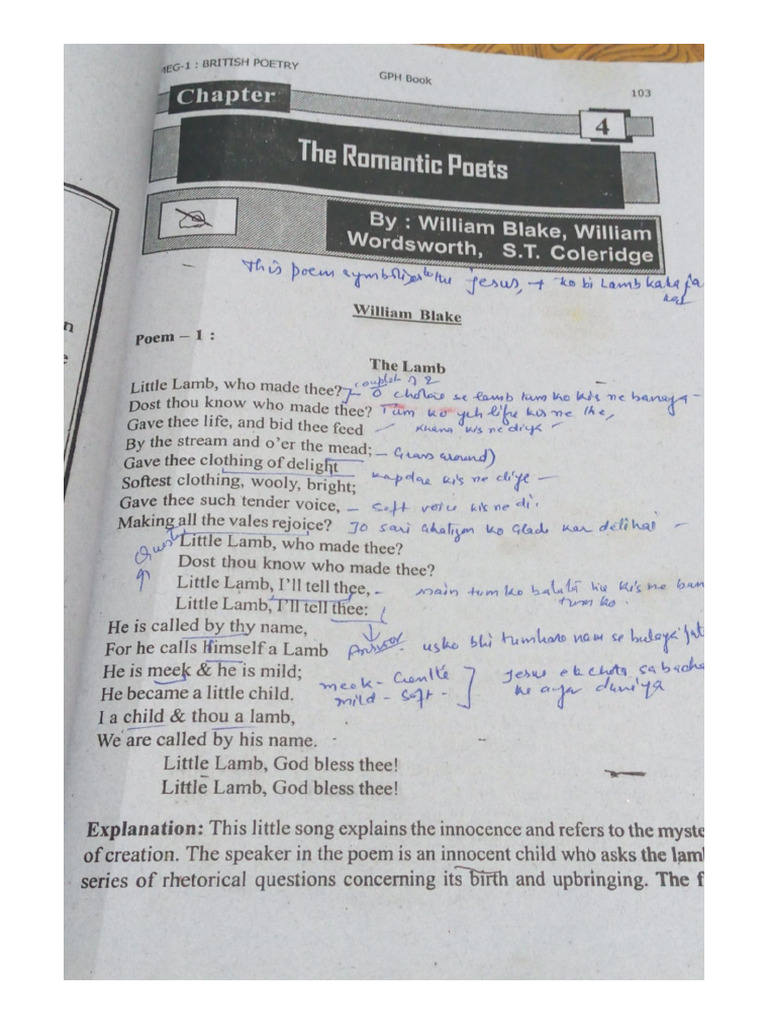 MEG-1 : BRITISH POETRY
GPH Book
103
Chapter
4
The Romantic Poets
By : William Blake, William
Wordsworth, S.T. Coleridge
This poem symbolizes to the jesus, ko bi Lamb kaha ja
hai
William Blake
Poem – 1 :
The Lamb
Little Lamb, who made thee? couplet 2 O chotae se lamb tum ko kis ne banaya -
Dost thou know who made thee? Tum ko yeh life kis ne
Gave thee life, and bid thee feed khana kis ne diya
By the stream and o'er the mead; - Grass around)
Gave thee clothing of delight
Softest clothing, wooly, bright; kapdae kis ne diye -
Gave thee such tender voice, - soft voice kis ne di.
Making all the vales rejoice? Jo sari ghatiyon ko Glade kar deti hai -
Little Lamb, who made thee?
Dost thou know who made thee?
Little Lamb, I'll tell thee, - main tum ko batata hu kis ne ban
Little Lamb, I'll tell thee: tum ko.
He is called by thy name,
For he calls Himself a Lamb Answer usko bhi tumhare nam se bulaya jat
He is meek & he is mild; meek - Gentle Jesus ek chota sa bacha
He became a little child. mild - Soft - ke aya duniya
I a child & thou a lamb,
We are called by his name.
Little Lamb, God bless thee!
Little Lamb, God bless thee!
Explanation: This little song explains the innocence and refers to the myste
of creation. The speaker in the poem is an innocent child who asks the lam
series of rhetorical questions concerning its birth and upbringing. The f